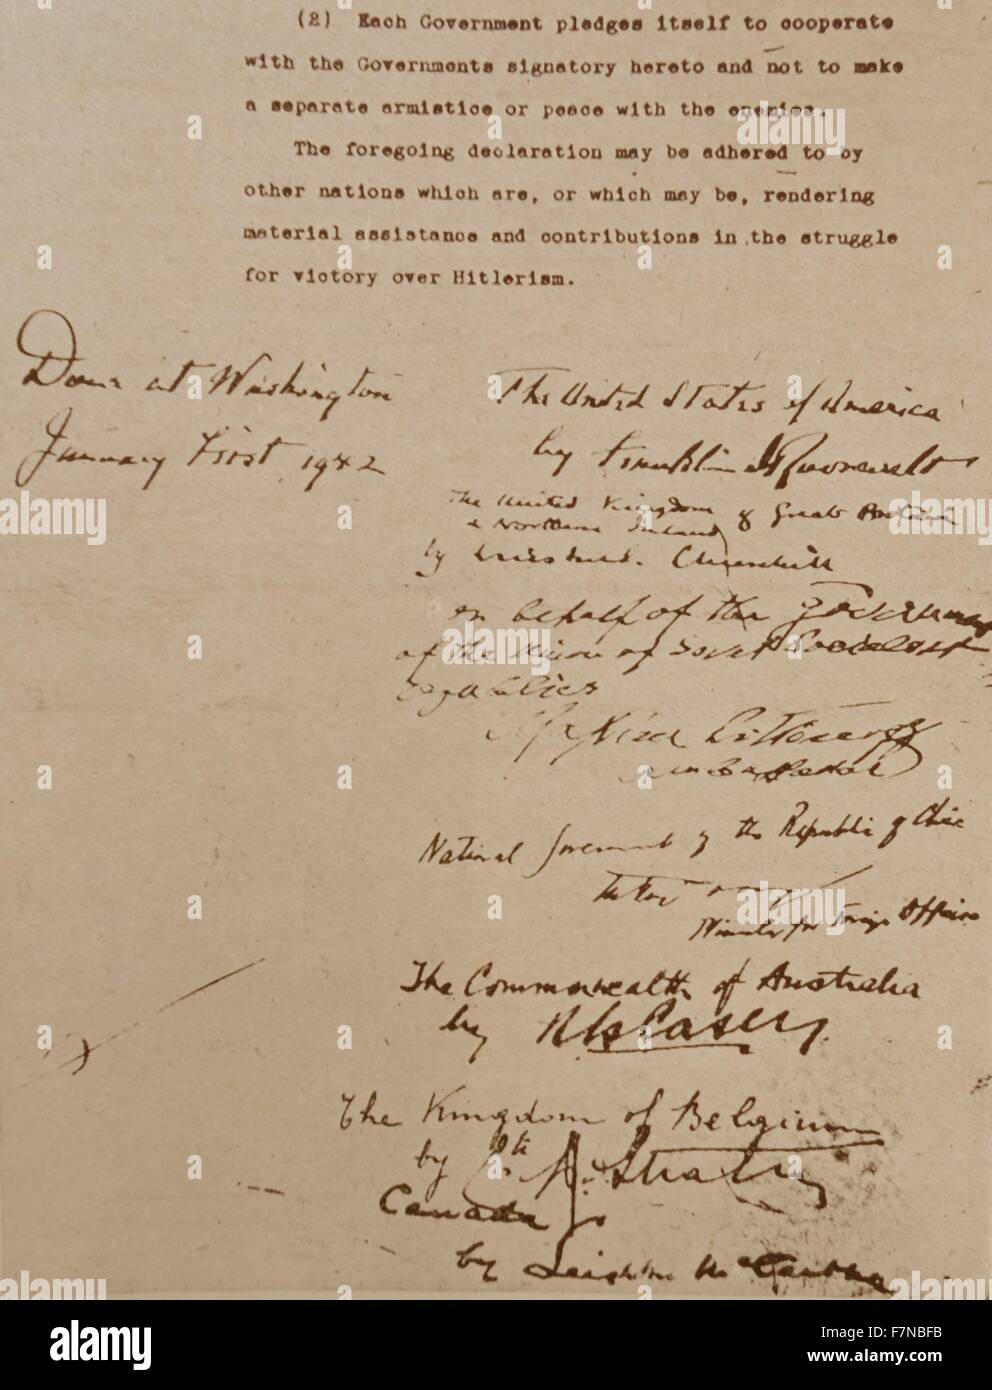 (2) Each Government pledges itself to cooperate
with the Governments signatory hereto and not to make
a separate armistice or peace with the enemies.
The foregoing declaration may be adhered to by
other nations which are, or which may be, rendering
material assistance and contributions in the struggle
for victory over Hitlerism.
Done at Washington
January First 1942
The United States of America
by Franklin D Roosevelt
The United Kingdom of Great Britain
& Northern Ireland
by Winston S. Churchill
on behalf of the Government
of the Union of Soviet Socialist
Republics
Maxim Litvinoff
Ambassador
National Government of the Republic of China
Minister for Foreign Affairs
The Commonwealth of Australia
by R G Casey
The Kingdom of Belgium
by Cte R. Straten
Canada
by Leighton McCarthy
a alamy stock photo
F7NBFB
www.alamy.com